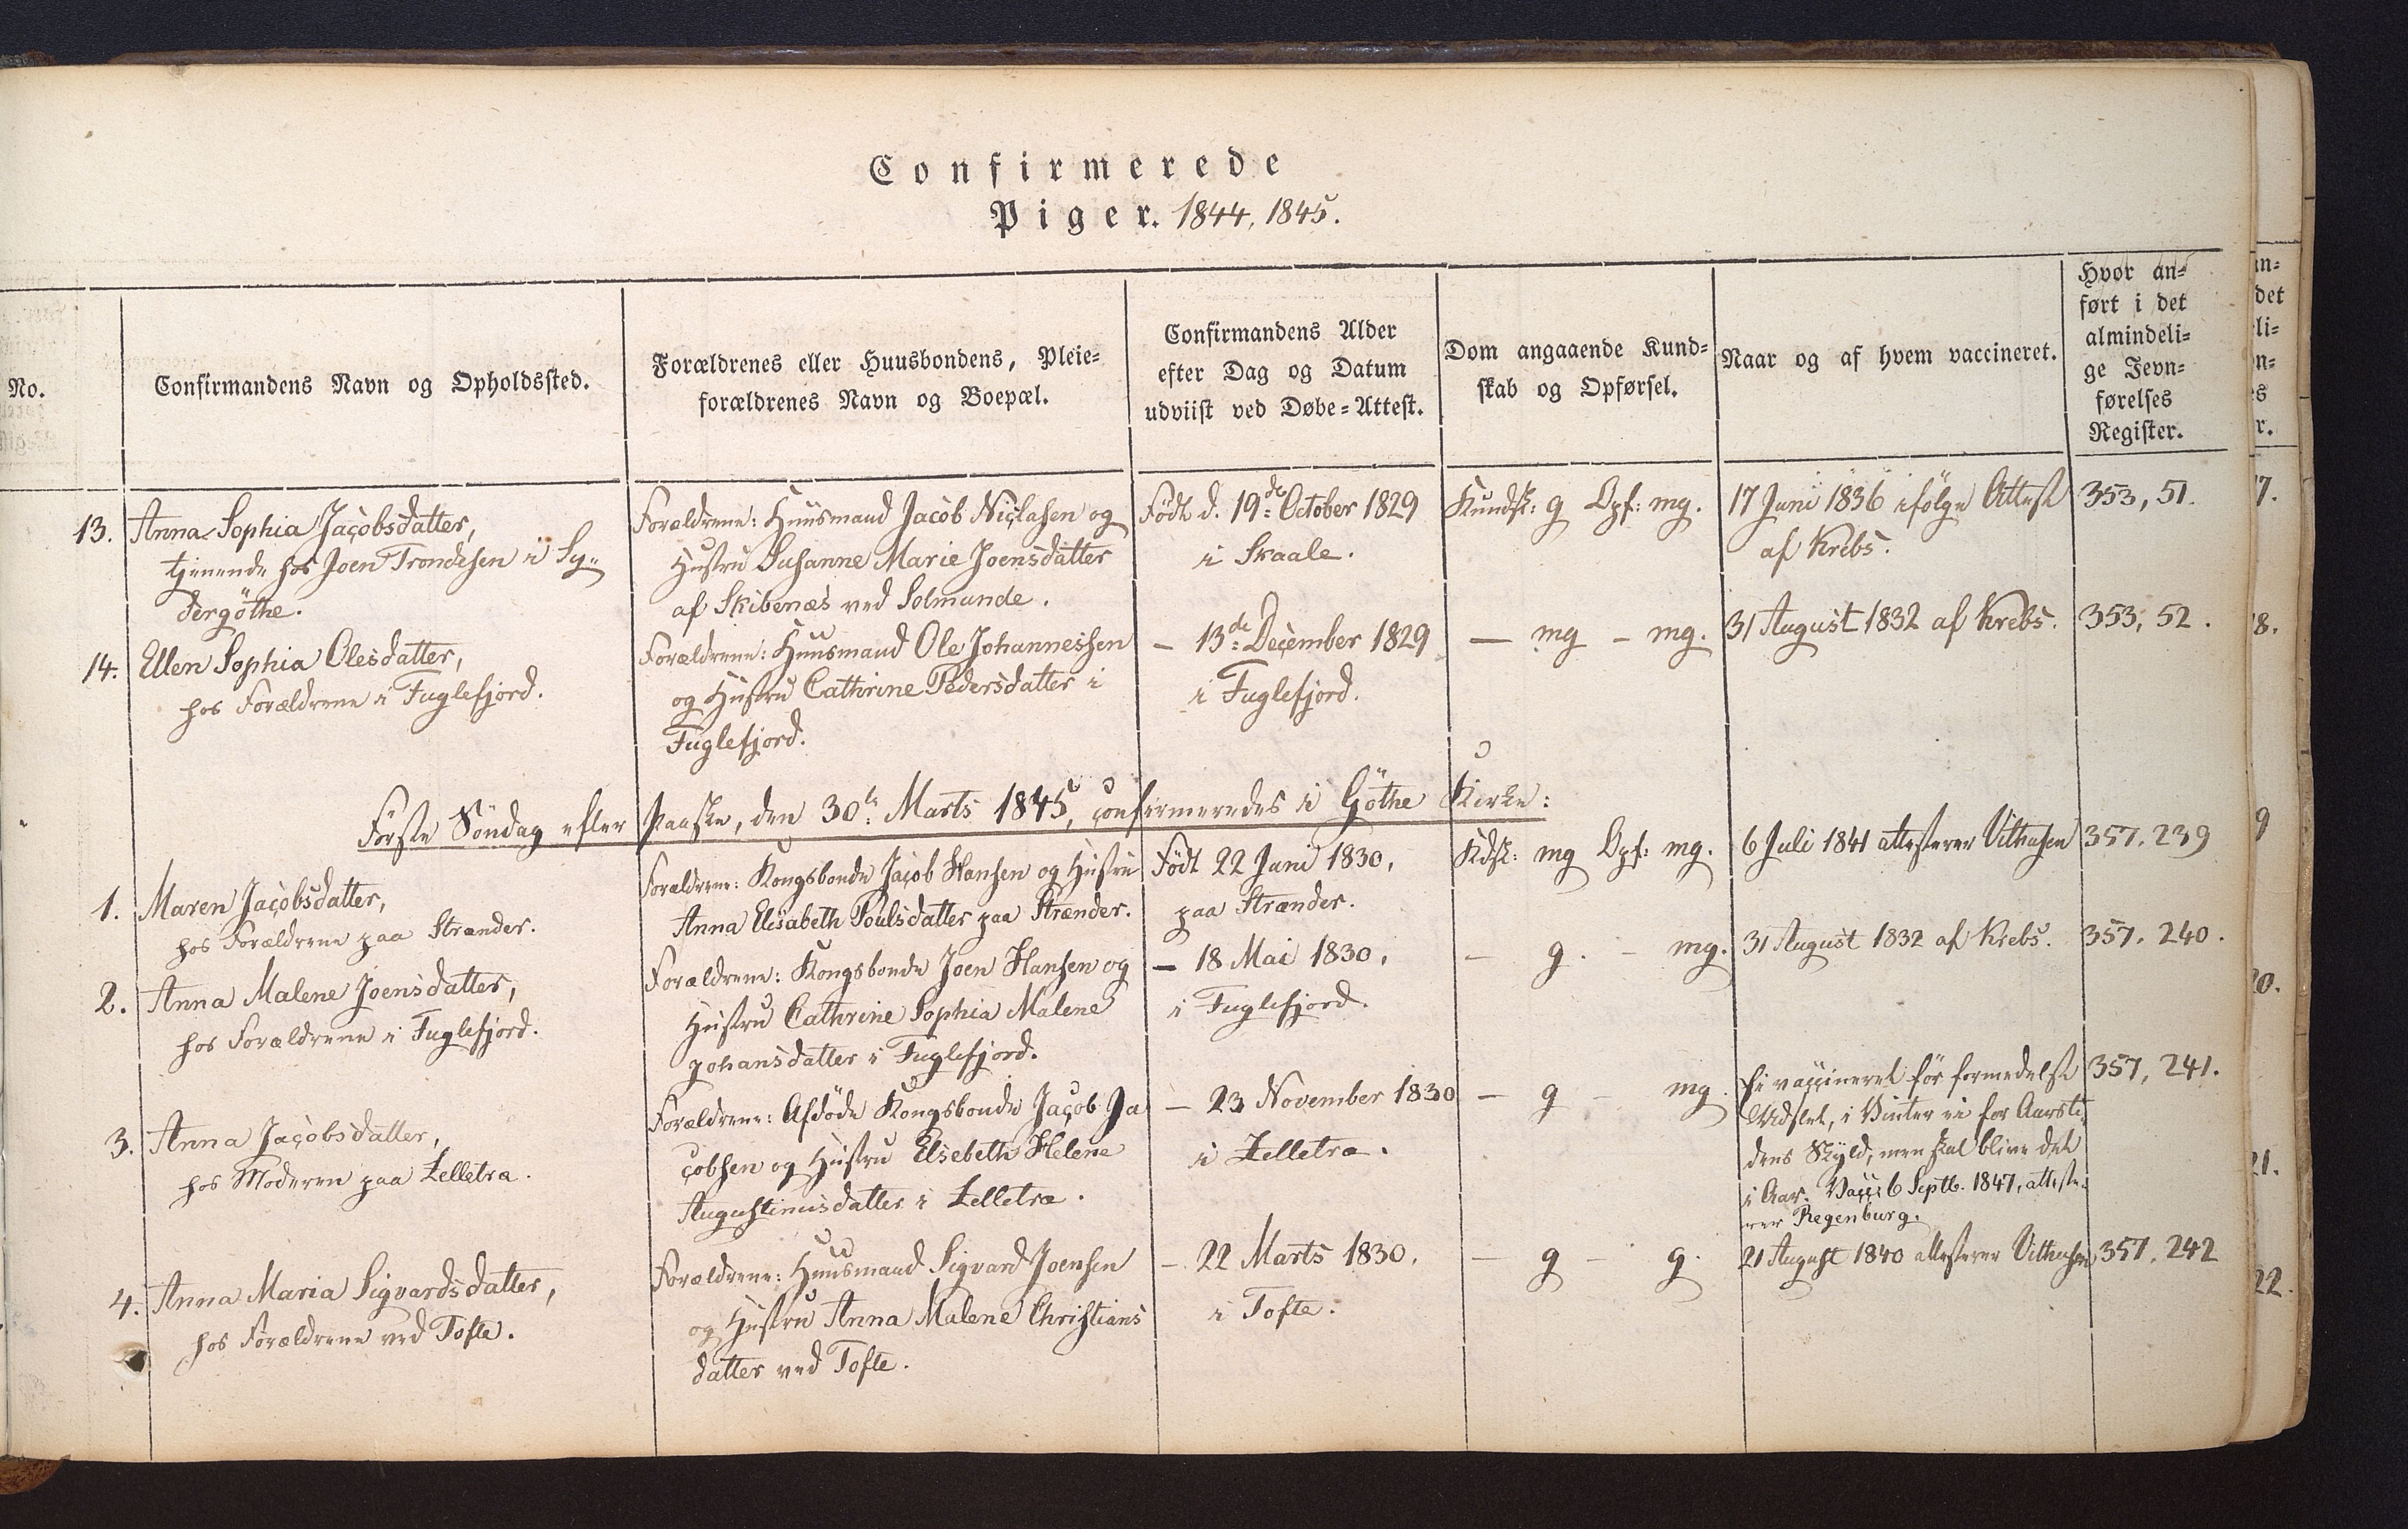 Confirmerede
Piger. 1844, 1845.
No.
Confirmandens Navn og Opholdssted.
Forældrenes eller Huusbondens, Pleie-
forældrenes Navn og Boepæl.
Confirmandens Alder
efter Dag og Datum
udviist ved Døbe-Attest.
Dom angaaende Kund-
skab og Opførsel.
Naar og af hvem vaccineret.
Hvor an-
ført i det
almindeli-
ge Jevn-
førelses
Register.
13.
Anna Sophia Jacobsdatter,
tjenende hos Joen Trondesen i Sy-
dergöthe.
Forældrene: Huusmand Jacob Niclasen og
Hustru Susanne Marie Joensdatter
af Skibenæs ved Selmunde.
Födt d. 19de October 1829
i Skaale.
Kundsk: g Opf: mg.
17 Juni 1836 ifölge Attest
af Krebs.
353, 51.
14.
Ellen Sophia Olesdatter,
hos Forældrene i Fuglefjord.
Forældrene: Huusmand Ole Johannessen
og Hustru Cathrine Pedersdatter i
Fuglefjord.
– 13de December 1829
i Fuglefjord.
— mg – mg.
31 August 1832 af Krebs.
353, 52.
Förste Söndag efter Paaske, den 30te Marts 1845, confirmeredes i Göthe Kirke:
1.
Maren Jacobsdatter,
hos Forældrene paa Strænder.
Forældrene: Kongsbonde Jacob Hansen og Hustru
Anna Elisabeth Poulsdatter paa Strænder.
Födt 22 Juni 1830,
paa Strænder.
Kdsk: mg Opf: mg.
6 Juli 1841 attesterer
357, 239
2.
Anna Malene Joensdatter,
hos Forældrene i Fuglefjord.
Forældrene: Kongsbonde Joen Hansen og
Hustru Cathrine Sophia Malene
Johansdatter i Fuglefjord.
– 18 Mai 1830,
i Fuglefjord.
– g. – mg.
31 August 1832 af Krebs.
357, 240.
3.
Anna Jacobsdatter,
hos Moderen paa Zelletræ.
Forældrene: Afdöde Kongsbonde Jacob Ja
cobsen og Hustru Elsebeth Helene
Augustinusdatter i Zelletræ.
– 23 November 1830
i Zelletræ.
– g – mg.
Ei vaccineret för formedelst
Udslet, i Vinter ei for Aarsti-
dens Skyld, men skal blive det
i Aar. Vacc: 6 Septb. 1847, atteste-
rer Regenburg.
357, 241.
4.
Anna Maria Sigvardsdatter,
hos Forældrene ved Tofte.
Forældrene: Huusmand Sigvard Joensen
og Hustru Anna Malene Christians
datter ved Tofte.
– 22 Marts 1830,
i Tofte.
– g – g.
21 August 1840 attesterer
357, 242